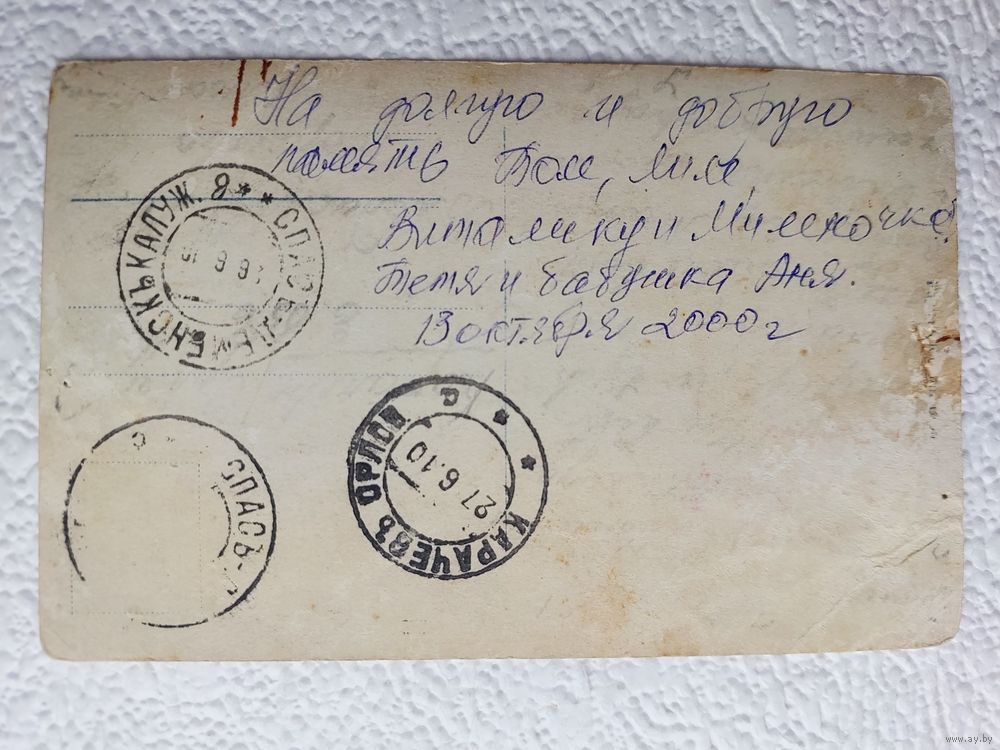 На долгую и добрую
память Вам, Миле,
Виталику и Милёночке.
Тетя и бабушка Аня.
13 октября 2000 г
СПАСЪ-ДЕМЕНСКЪ КАЛУЖ. 8
КАРАЧЕВЪ ОРЛОВ. С
27.6.10
СПАСЪ-
С
www.ay.by